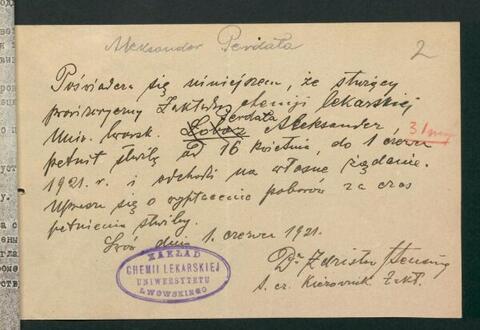 Aleksander Perdała
2
Poświadcza się niniejszem, że służący
prowizoryczny Zakładu chemji lekarskiej
Perdała
Uniw. lwowsk. Aleksander, 31 maj
pełnił służbę od 16 kwietnia, do 1 czerwca
1921. r. i odchodzi na własne żądanie.
Uprasza się o wypłacenie poborów za czas
pełnienia służby.
Lwów dnia 1. czerwca 1921.
ZAKŁAD
CHEMII LEKARSKIEJ
UNIWERSYTETU
LWOWSKIEGO
Dr
Kierownik Zakł.